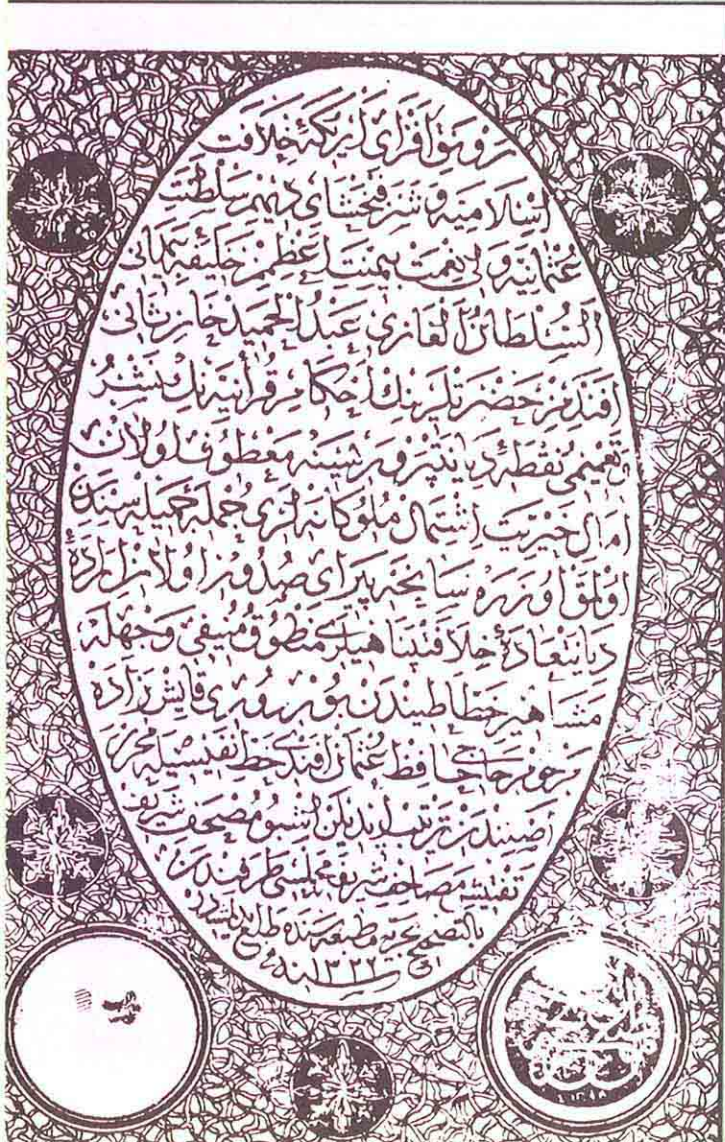 رونق افزای اریکهٔ خلافت
اسلامیه و شرفبخشای دیهیم سلطنت
عثمانیه ولی نعمت بیمنت اعظمز خلیفهٔ
السلطان الغازی عبد الحمید خان ثانی
افندمز حضرتلرینك احکام قرآنیه نك نشر
تعمیمی نقطهٔ دیانتپرورسینه معطوف اولان
امال خیریت اشتمال ملوکانه لری جمله جمیله سندن
اولمق اوزره سانحه پیرای صدور اولان ارادهٔ
دیانتعادهٔ خلافتپناهیلری منطوق منیفی وجهله
مشاهیر خطاطیندن بوردوری قایش زاده
مرحوم حاجی حافظ عثمان افندی خط نفیسیله محرر
اصلیندن ترتیب ایدیلن اشبو مصحف شریف
تفتیش مصاحف شریفه مجلسی طرفندن
بالتصحیح بحریه مطبعه سنده طبع ایدیلمشدر
سنه ١٣٢٢